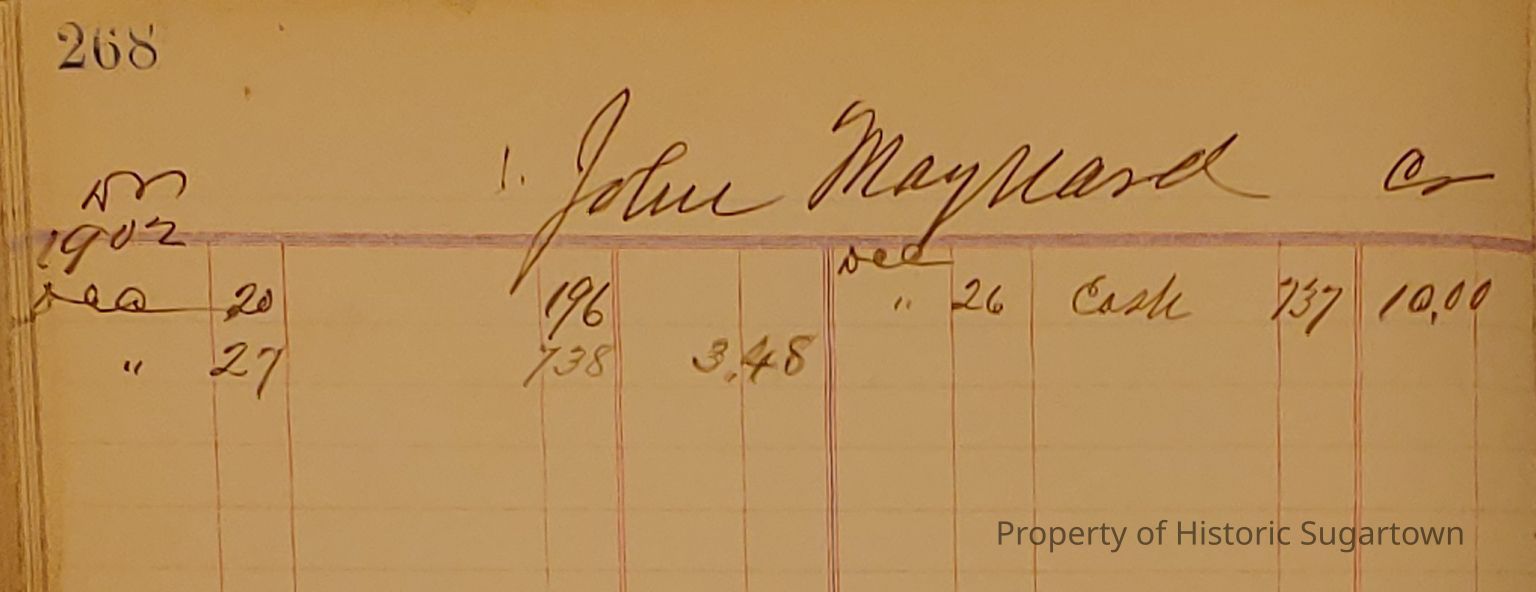 268
Dr 1. John Maynard Cr
1902 Dec
Dec 20 196 " 26 Cash 737 10,00
" 27 738 3.48
Property of Historic Sugartown